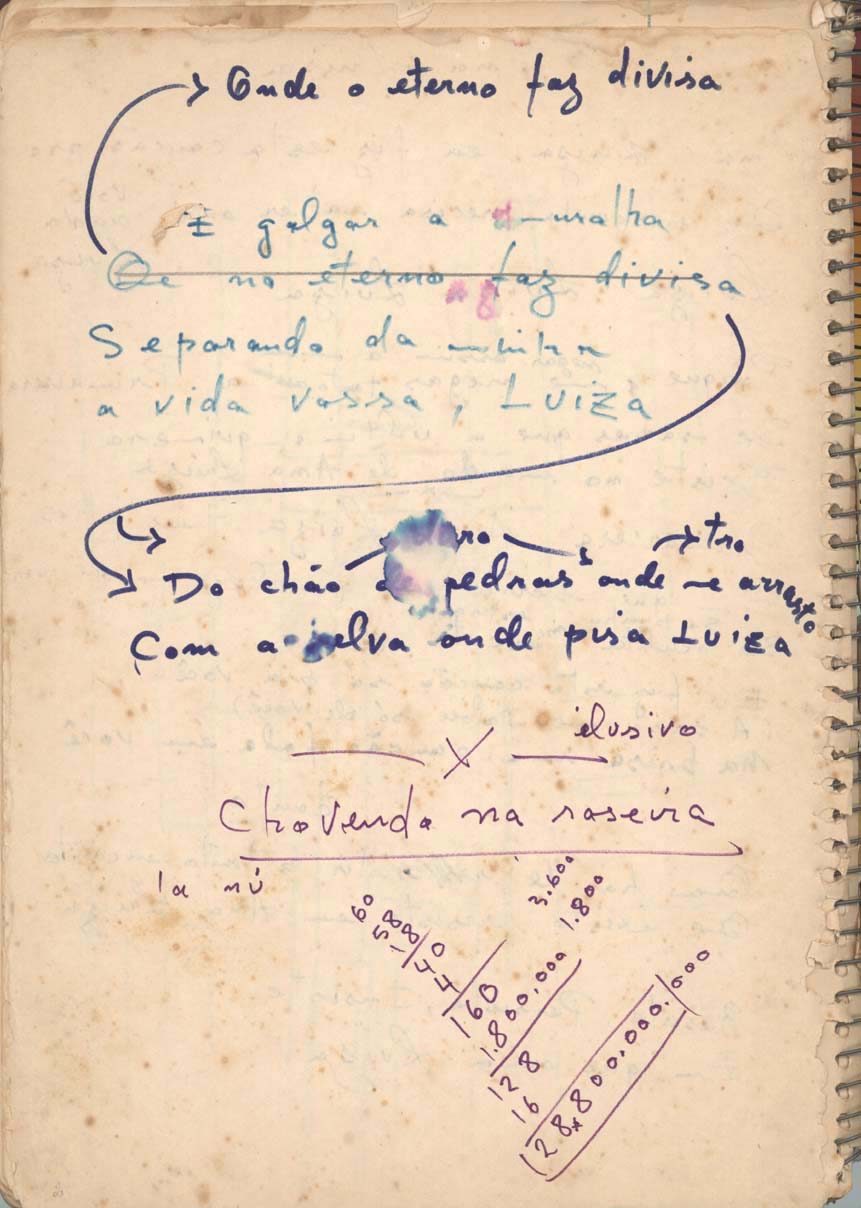 Onde o eterno faz divisa
E galgar a muralha
Qe no eterno faz divisa
Separando da minha
a vida vossa, Luiza
tro
Do chão de pedras onde me arrasto
Com a relva onde pisa Luiza
X ilusivo
Chovendo na roseira
la nú
3.600
1.800
60
58
18
40
44
160
1.800.000
128
16
28.800.000.000